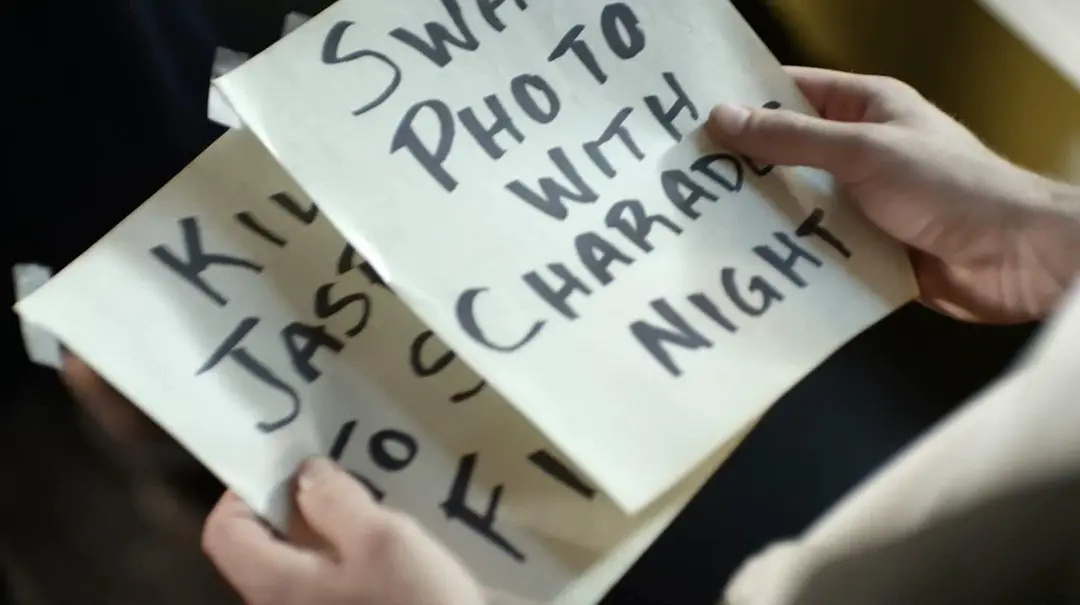 SWA
PHOTO
WITH
CHARADE
NIGHT
KIL
JAS
S
GO
F